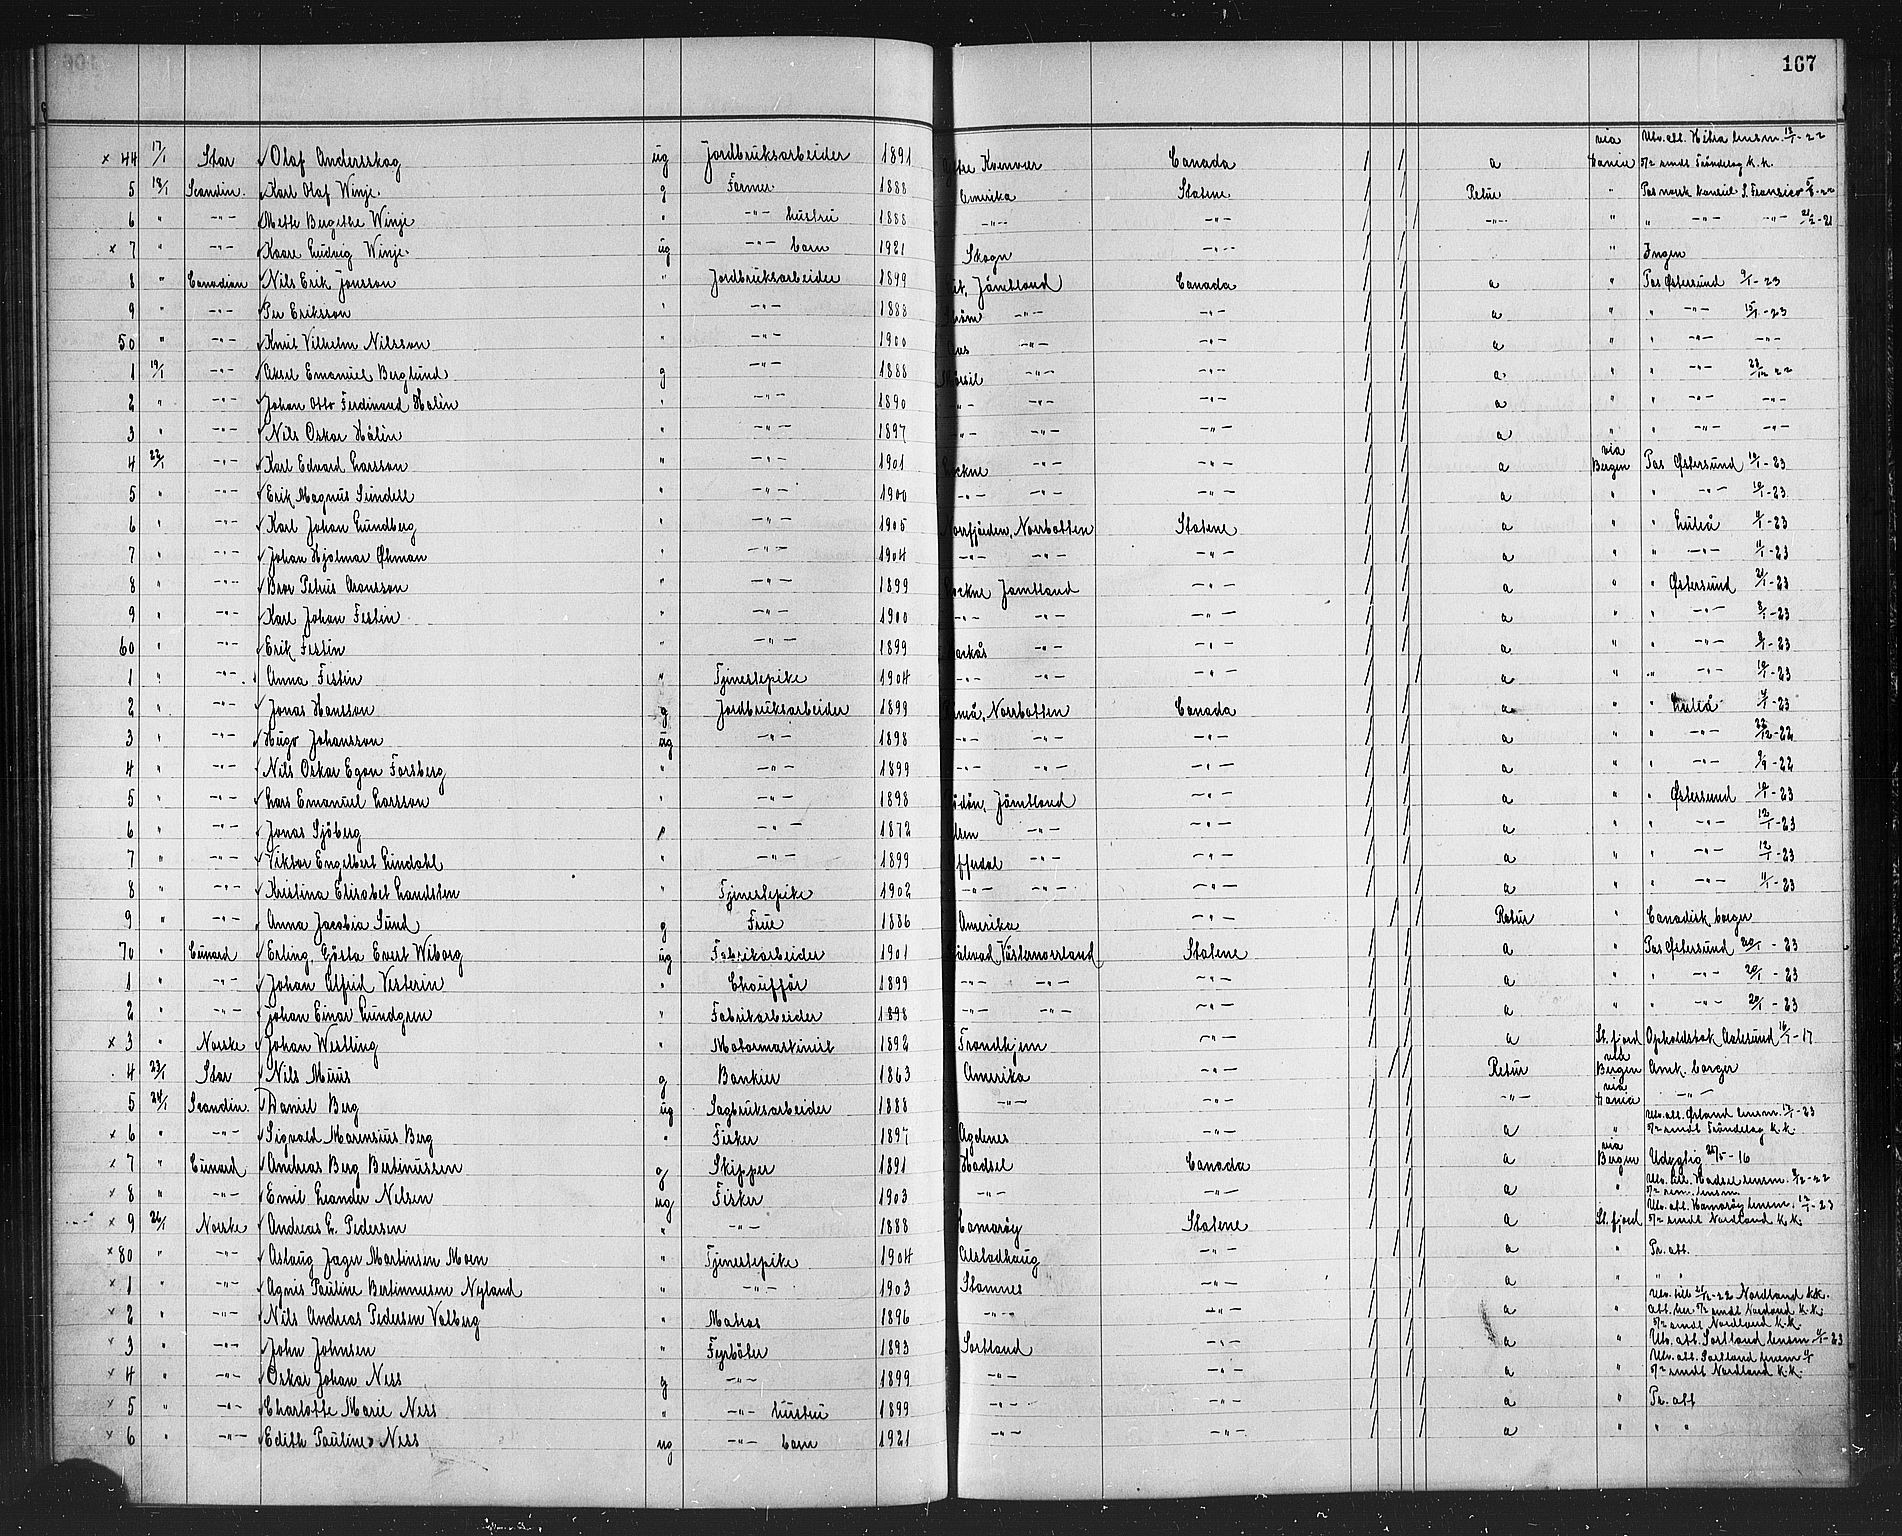 167
× 44 17/1 Star Olaf Andersskog ug Jordbruksarbeider 1891 Kvenvær Canada a via Hania Utv. att. Hitra lensm. 13/1-22 5/2 rmdt Trøndelag k.k.
5 18/1 Scandin. Karl Olaf Winje g Farmer 1888 Amerika Statene Retur " Pas norsk konsul S. Fransisco
6 " -"- Mette Bergethe Winje " -"- hustru 1888 -"- -"- -"- " " -"- -"- 21/2-21
× 7 " -"- Kaare Ludvig Winje ug -"- barn 1921 Skogn " Ingen
8 " Canadian Nils Erik Jonsson " Jordbruksarbeider 1899 Jämtland Canada a " Pas Østersund 9/1-23
9 " -"- Per Eriksson " -"- 1888 Ström -"- -"- a " " -"- 15/1-23
50 " -"- Knut Vilhelm Nilsson " -"- 1900 Aas -"- -"- a " " -"- -"-
1 19/1 -"- Aksel Emanuel Berglund g -"- 1888 Mörsil -"- -"- a " " -"- 23/12 22
2 " -"- Johan Otto Ferdinand Halin " -"- 1890 -"- -"- -"- a " " -"- -"-
3 " -"- Nils Oskar Hålin " -"- 1897 -"- -"- -"- a " " -"- -"-
4 22/1 -"- Karl Edvard Larsson " -"- 1901 Lockne -"- -"- a via Bergen Pas Østersund 10/1-23
5 " -"- Erik Magnus Sundell " -"- 1900 -"- -"- -"- a " " -"- 10/1-23
6 " -"- Karl Johan Lundberg " -"- 1905 Norrfjärden, Norrbotten Statene a " " Luleå 11/1-23
7 " -"- Johan Hjalmar Øhman " -"- 1904 -"- -"- -"- a " " -"- 11/1-23
8 " -"- Bror Petrus Aronsson " -"- 1899 Lockne Jämtland -"- a " " Østersund 21/1-23
9 " -"- Karl Johan Festin " -"- 1900 -"- -"- -"- a " " -"- 8/1-23
60 " -"- Erik Festin " -"- 1899 -"- -"- a " " -"- 8/1-23
1 " -"- Anna Festin " Tjenestepike 1904 -"- -"- -"- a " " -"- 10/1-23
2 " -"- Jonas Hansson g Jordbruksarbeider 1899 Norrbotten Canada a " " Luleå 11/1-23
3 " -"- Hugo Johansson ug -"- 1898 -"- -"- -"- a " " -"- 22/12-22
4 " -"- Nils Oskar Egon Forsberg " -"- 1899 -"- -"- -"- a " " -"- 9/9-22
5 " -"- Lars Emanuel Larsson " -"- 1898 Rödön, Jämtland -"- a " " Østersund 10/1-23
6 " -"- Jonas Sjöberg " -"- 1872 Alsen -"- -"- a " " -"- 12/1-23
7 " -"- Viktor Engelbert Lindahl " -"- 1899 Offerdal -"- -"- a " " -"- 12/1-23
8 " -"- Kristina Elisabet Landsten " Tjenestepike 1902 -"- -"- -"- a " " -"- 11/1-23
9 " -"- Anna Jacobia Sund g Frue 1886 Amerika -"- Retur " Canadisk borger
70 " Cunard Erling Gösta Evert Wiborg ug Fabrikarbeider 1901 Västernorrland Statene a " Pas Østersund 20/1-23
1 " -"- Johan Alfrid Vesterin " Chouffør 1899 -"- -"- -"- a " " -"- 20/1-23
2 " -"- Johan Einar Lundgren " Fabrikarbeider 1898 -"- -"- -"- a " " -"- 20/1-23
× 3 " Norske Johan Westling " Motormaskinist 1892 Trondhjem -"- a St.fjord Opholdsbok Aalesund 16/1-17
4 23/1 Star Nils Muus g Bankier 1863 Amerika -"- Retur via Bergen Amk. borger
5 24/1 Scandin. Daniel Berg ug Sagbruksarbeider 1888 -"- -"- -"- via Hania -"-
× 6 " -"- Sigvald Marensius Berg " Fisker 1897 Agdenes -"- a " Utv. att. Ørland lensm. 17/1-23 5/2 rmdt Trøndelag k.k.
× 7 " Cunard Andreas Berg Bertinussen g Skipper 1891 Hadsel Canada a via Bergen Udygtig 20/5-16
× 8 " -"- Emil Leander Nilsen ug Fisker 1903 -"- -"- a " Utv. till. Hadsel lensm. 8/12-22 5/2 rem. lensm.
× 9 26/1 Norske Andreas E. Pedersen " -"- 1888 Hamarøy Statene a St.fjord Utv. att. Hamarøy lensm. 12/1-23 5/2 rmdt Nordland k.k.
× 80 " -"- Aslaug Martinsen Moen " Tjenestepike 1904 Alstadhaug -"- a " Pr. att.
× 1 " -"- Agnes Pauline Bertinnusen Nyland " -"- 1903 Stamnes -"- a " " "
× 2 " -"- Nils Andreas Pedersen Valberg " Matros 1896 -"- -"- a " Utv. till. 21/12-22 Nordland k.k. 5/2 rmdt Nordland k.k.
× 3 " -"- John Johnsen " Fyrbøter 1893 Sortland -"- a " 5/2 rmdt Nordland k.k. Utv. att. Sortland lensm 11/1-23
× 4 " -"- Oskar Johan Ness g -"- 1899 -"- -"- a " Utv. att. Sortland lensm 11/1 5/2 rmdt Nordland k.k.
× 5 " -"- Charlotte Marie Ness " -"- hustru 1899 -"- -"- a " Pr. att
× 6 " -"- Edith Pauline Ness ug -"- barn 1921 -"- -"- a " " "